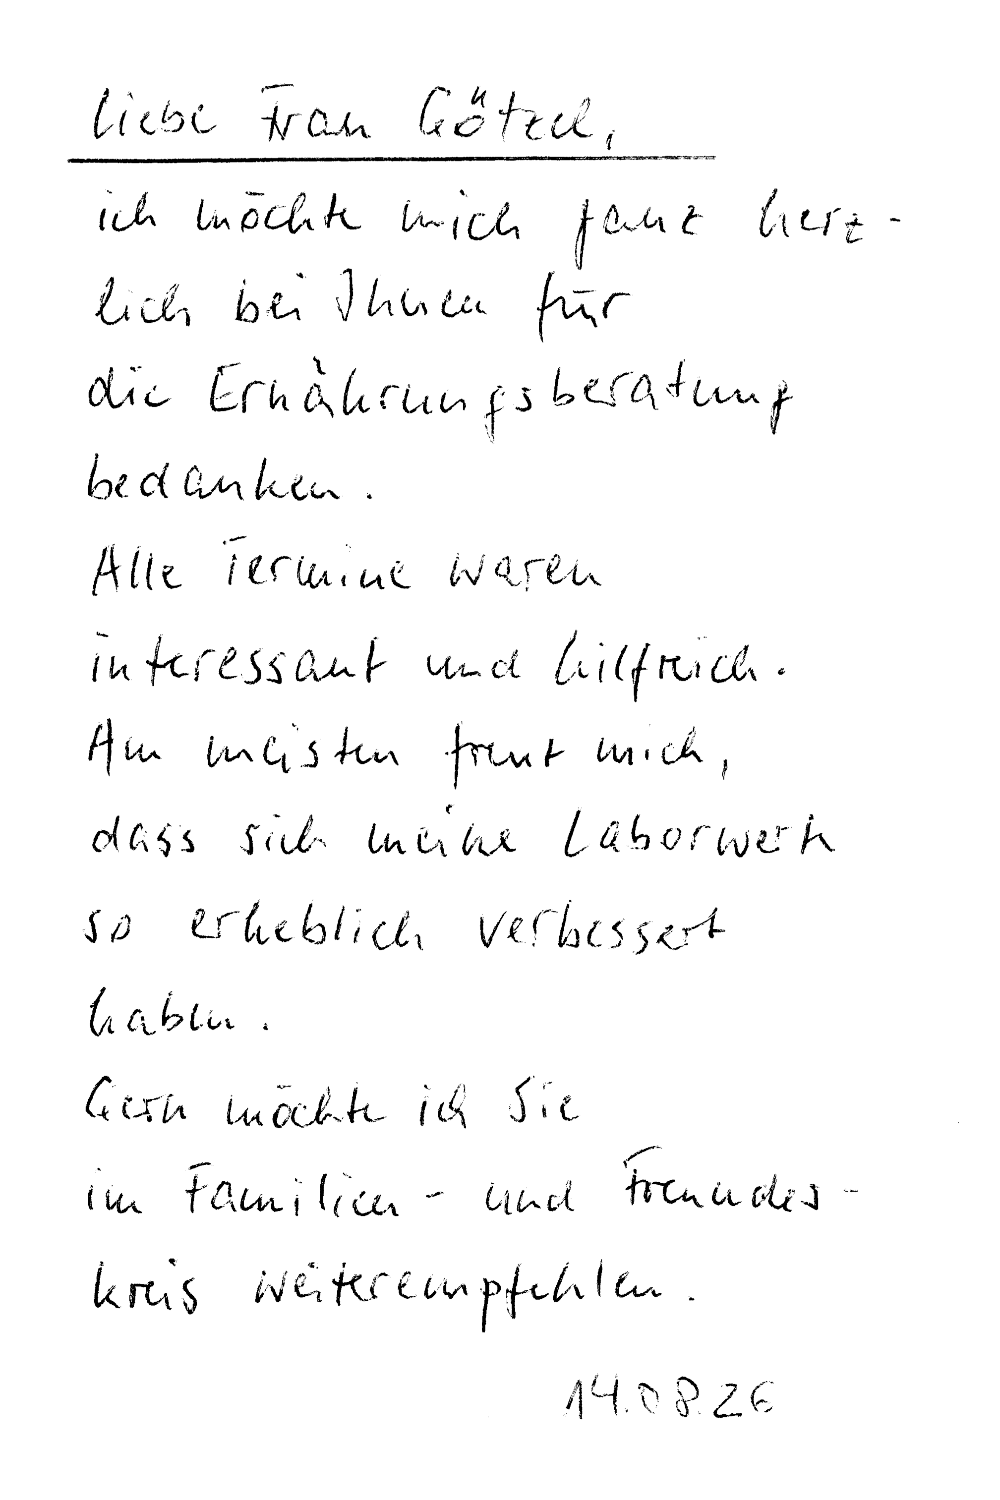 Liebe Frau Götzel,
ich möchte mich ganz herz-
lich bei Ihnen für
die Ernährungsberatung
bedanken.
Alle Termine waren
interessant und hilfreich.
Am meisten freut mich,
dass sich meine Laborwerte
so erheblich verbessert
haben.
Gern möchte ich Sie
im Familien- und Freundes-
kreis weiterempfehlen.
14.08.26